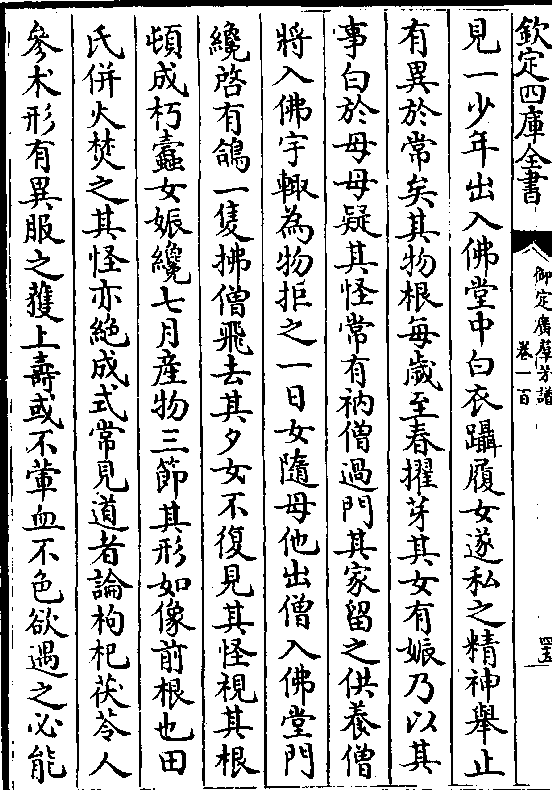 欽定四庫全書
御定廣羣芳譜
卷一百
四五
見一少年出入佛堂中白衣躡履女遂私之精神舉止
有異於常矣其物根每歲至春擢芽其女有娠乃以其
事白於母母疑其怪常有衲僧過門其家留之供養僧
將入佛宇輙為物拒之一日女隨母他出僧入佛堂門
纔啓有鴿一隻拂僧飛去其夕女不復見其怪視其根
頓成朽蠧女娠纔七月産物三節其形如像前根也田
氏併火焚之其怪亦絶成式常見道者論枸杞茯苓人
參术形有異服之獲上壽或不葷血不色欲遇之必能